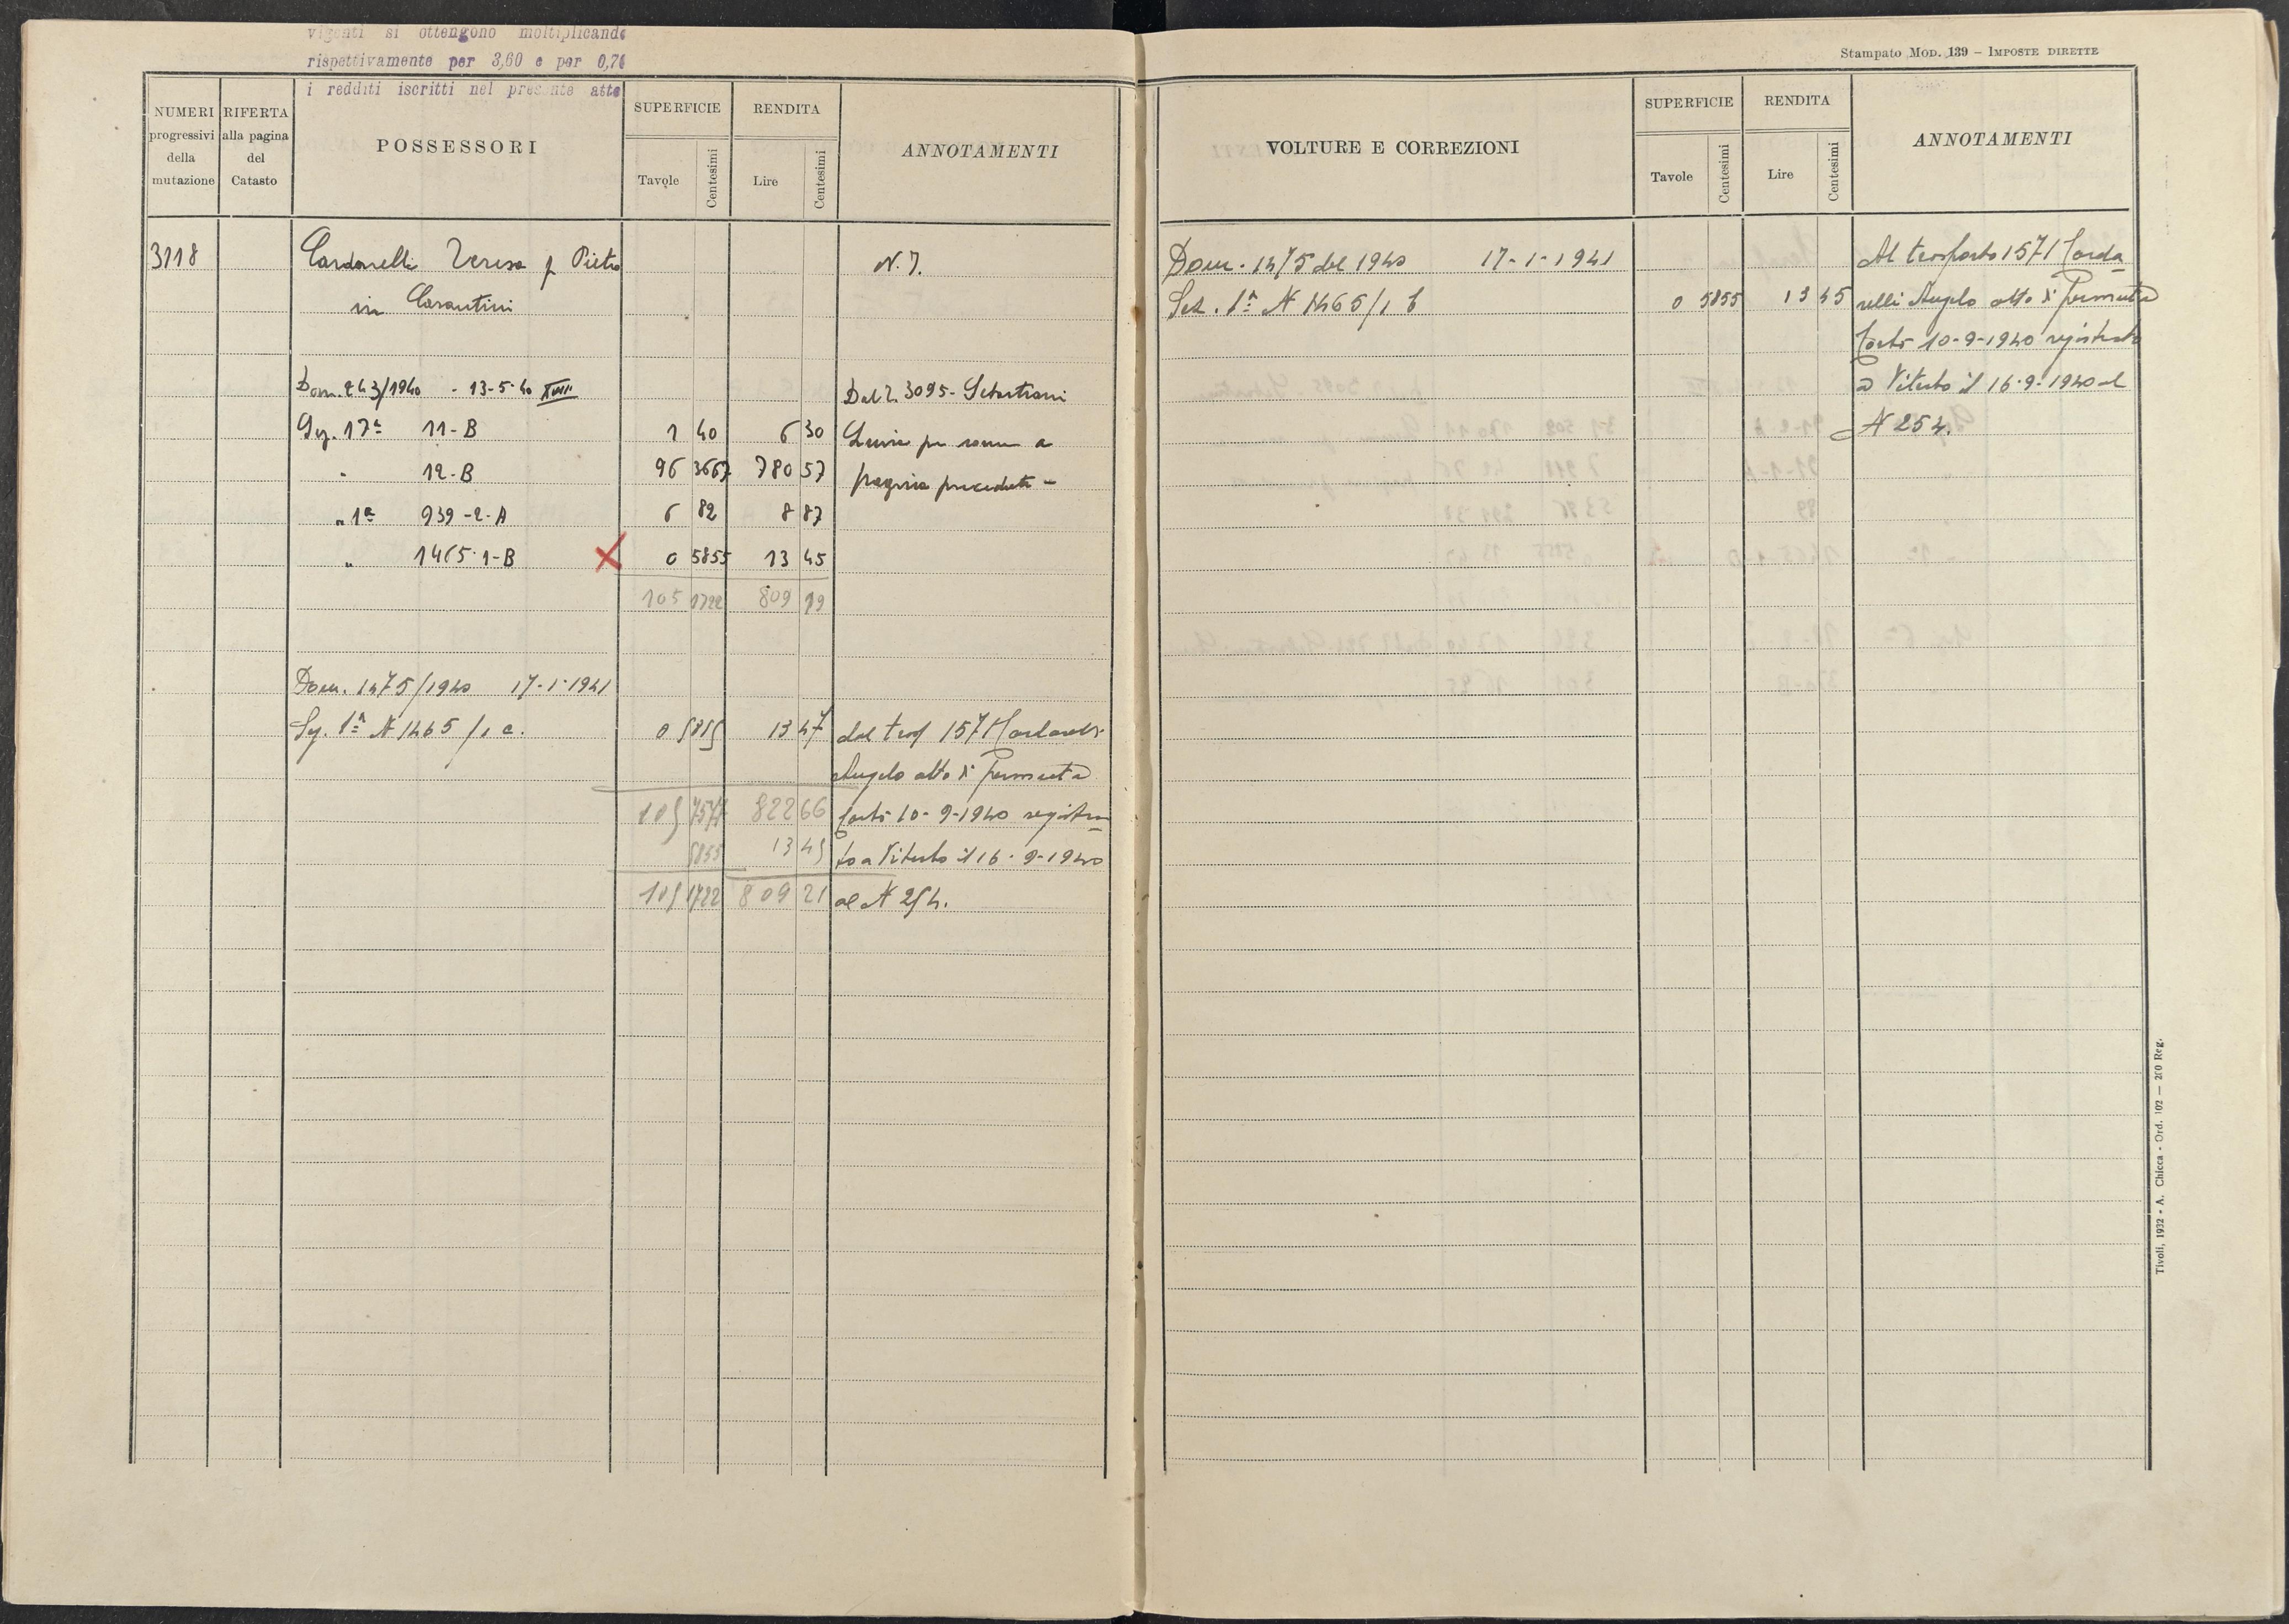 vigenti si ottengono moltiplicando
rispettivamente per 3,60 e per 0,70
i redditi iscritti nel presente atto
NUMERI
progressivi
della
mutazione
RIFERTA
alla pagina
del
Catasto
POSSESSORI
SUPERFICIE
Tavole
Centesimi
RENDITA
Lire
Centesimi
ANNOTAMENTI
3118 Cardarelli Teresa f Pietro N. 7.
in Carantini
Dom. 243/1940 - 13-5-40 XVIII Dal T. 3095 - Sebastiani
Sez. 17ª 11-B 1 40 6 30 per a
" 12-B 96 3667 780 57 pagina precedente -
" 1ª 939-2-A 6 82 8 87
" 1465-1-B X 0 5855 13 45
105 1722 809 19
Dom. 1475/1940 17-1-1941
Sez. 1ª N 1465/1 c. 0 5855 13 47 dal trasf 1571 Cardarelli
Angelo atto di permuta
105 7577 822 66 Corti 10-9-1940 registra
5855 13 45 to a Viterbo il 16-9-1940
105 1722 809 21 al N 254.
Stampato MOD. 139 - IMPOSTE DIRETTE
VOLTURE E CORREZIONI
SUPERFICIE
Tavole
Centesimi
RENDITA
Lire
Centesimi
ANNOTAMENTI
Dom. 1475 del 1940 17-1-1941 Al trasporto 1571 Carda
Sez. 1ª N 1465/1 b 0 5855 13 45 relli Angelo atto di permuta
Corti 10-9-1940 registrato
a Viterbo il 16-9-1940 al
N 254.
Tivoli, 1932 - A. Chicca - Ord. 102 — 200 Reg.